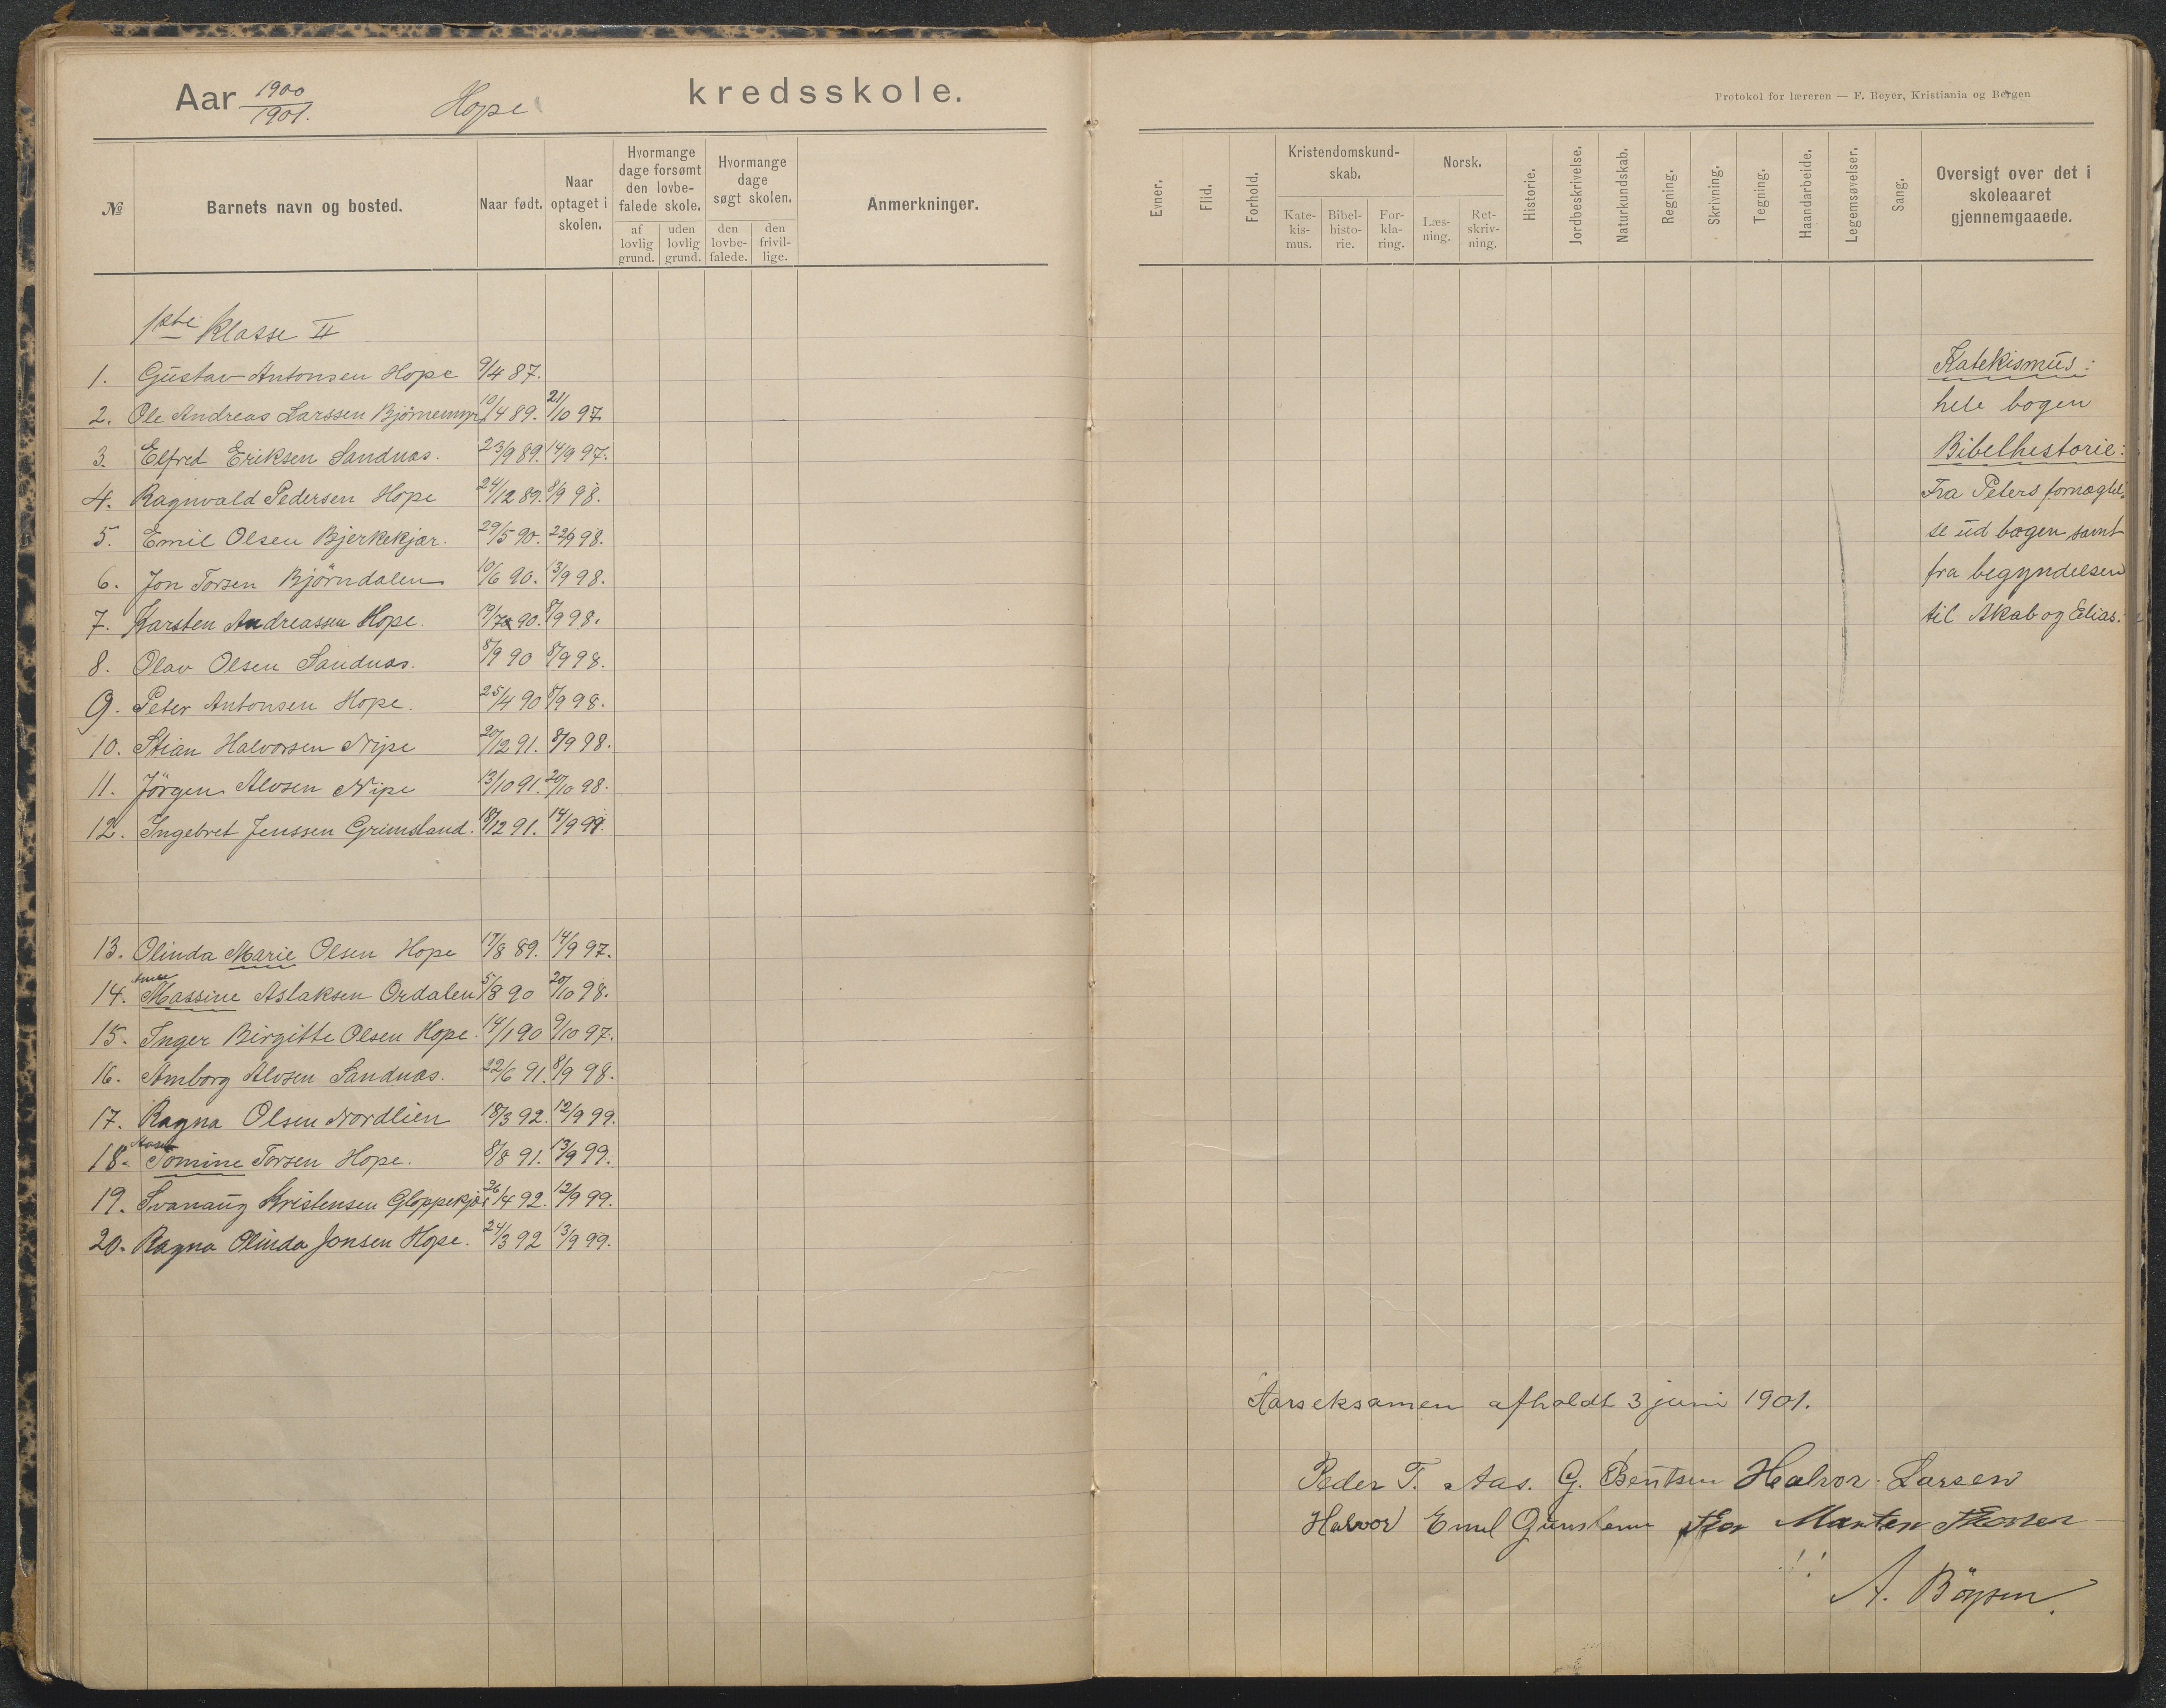 Aar 1900/1901. Hope kredsskole.
№ Barnets navn og bosted. Naar født. Naar optaget i skolen. Hvormange dage forsømt den lovbefalede skole. af lovlig grund. uden lovlig grund. Hvormange dage søgt skolen. den lovbefalede. den frivillige. Anmerkninger.
1ste Klasse II
1. Gustav Antonsen Hope 9/4 87.
2. Ole Andreas Larssen Björnemyr 10/4 89. 21/10 97
3. Elfred Eriksen Sandnas. 23/9 89. 14/9 97.
4. Ragnvald Pedersen Hope 24/12 89. 8/9 98.
5. Emil Olsen Bjerkekjær. 29/5 90. 22/9 98.
6. Jon Torsen Björndalen 10/6 90. 13/9 98.
7. Karsten Andreassen Hope. 19/7 90. 8/9 98.
8. Olav Olsen Sandnas. 8/9 90 8/9 98.
9. Peter Antonsen Hope. 25/4 90 8/9 98.
10. Stian Halvorsen Nipe 20/12 91. 8/9 98.
11. Jörgen Alvsen Nipe 13/10 91. 20/10 98.
12. Ingebret Jenssen Grimsland. 18/12 91. 14/9 99.
13. Olinda Marie Olsen Hope 17/8 89. 14/9 97.
14. Anne Massine Aslaksen Ordalen 5/8 90 20/10 98.
15. Inger Birgitte Olsen Hope. 14/1 90 9/10 97.
16. Amborg Alvsen Sandnas. 22/6 91. 8/9 98.
17. Ragna Olsen Nordlien 18/3 92. 12/9 99.
18. Aase Tomine Torsen Hope. 8/8 91. 13/9 99.
19. Svanaug Kristensen Gloppekjær 26/4 92. 12/9 99.
20. Ragna Olinda Jonsen Hope. 24/3 92 13/9 99.
Protokol for læreren — F. Beyer, Kristiania og Bergen
Evner. Flid. Forhold. Kristendomskundskab. Katekismus. Bibelhistorie. Forklaring. Norsk. Læsning. Retskrivning. Historie. Jordbeskrivelse. Naturkundskab. Regning. Skrivning. Tegning. Haandarbeide. Legemsøvelser. Sang. Oversigt over det i skoleaaret gjennemgaaede.
Katekismus:
hele bogen
Bibelhistorie:
Fra Peters fornægtel-
se ud bogen samt
fra begyndelsen
til Akab og Elias.
Aarseksamen afholdt 3 juni 1901.
Peder T. Aas. G. Bentsen Halvor Larsen
Halvor Emil Morten
A. Böysen.